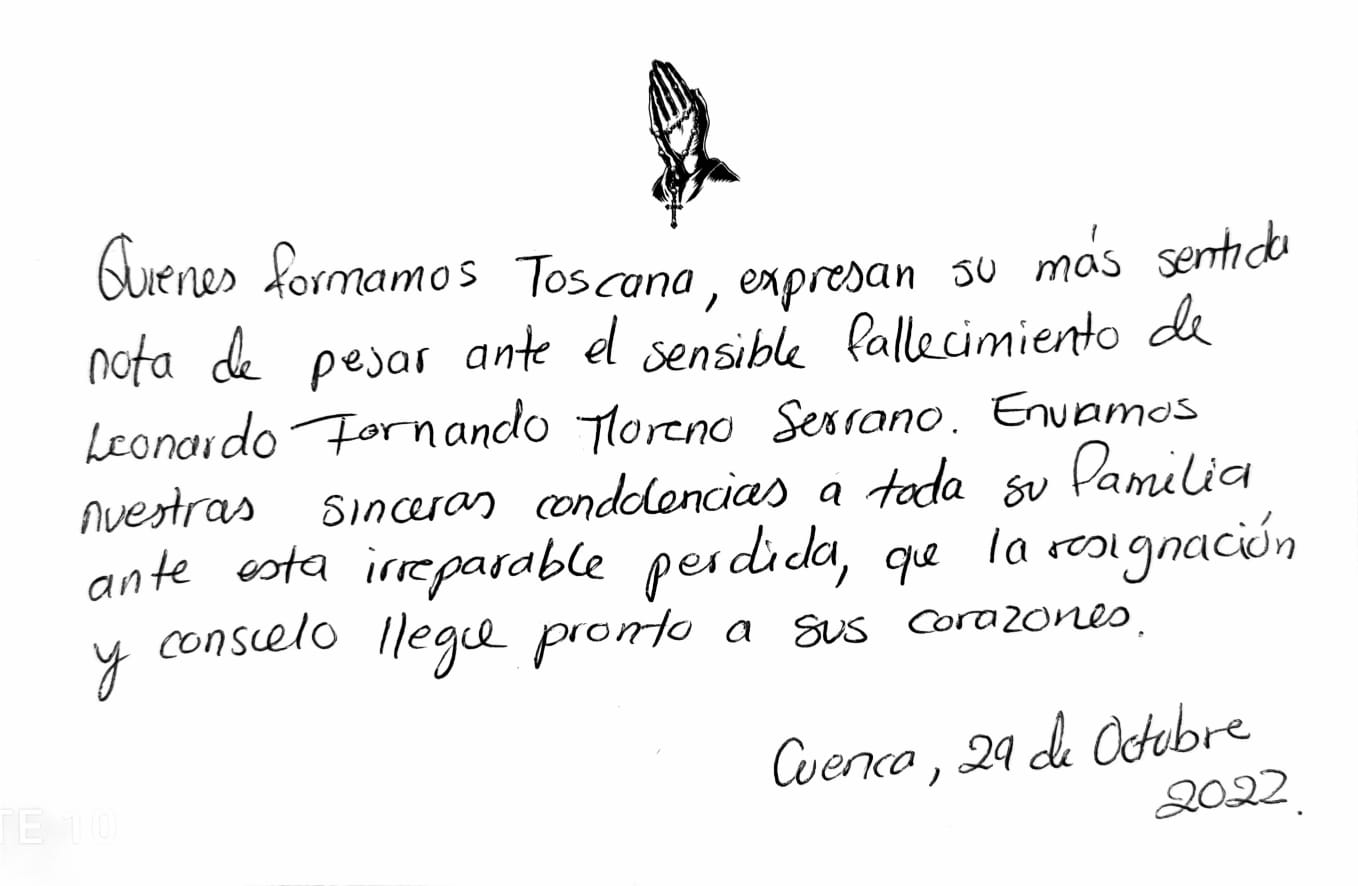 Quienes formamos Toscana, expresan su más sentida
nota de pesar ante el sensible fallecimiento de
Leonardo Fernando Moreno Serrano. Enviamos
nuestras sinceras condolencias a toda su familia
ante esta irreparable perdida, que la resignación
y consuelo llegue pronto a sus corazones.
Cuenca, 29 de Octubre
2022.
TE 10